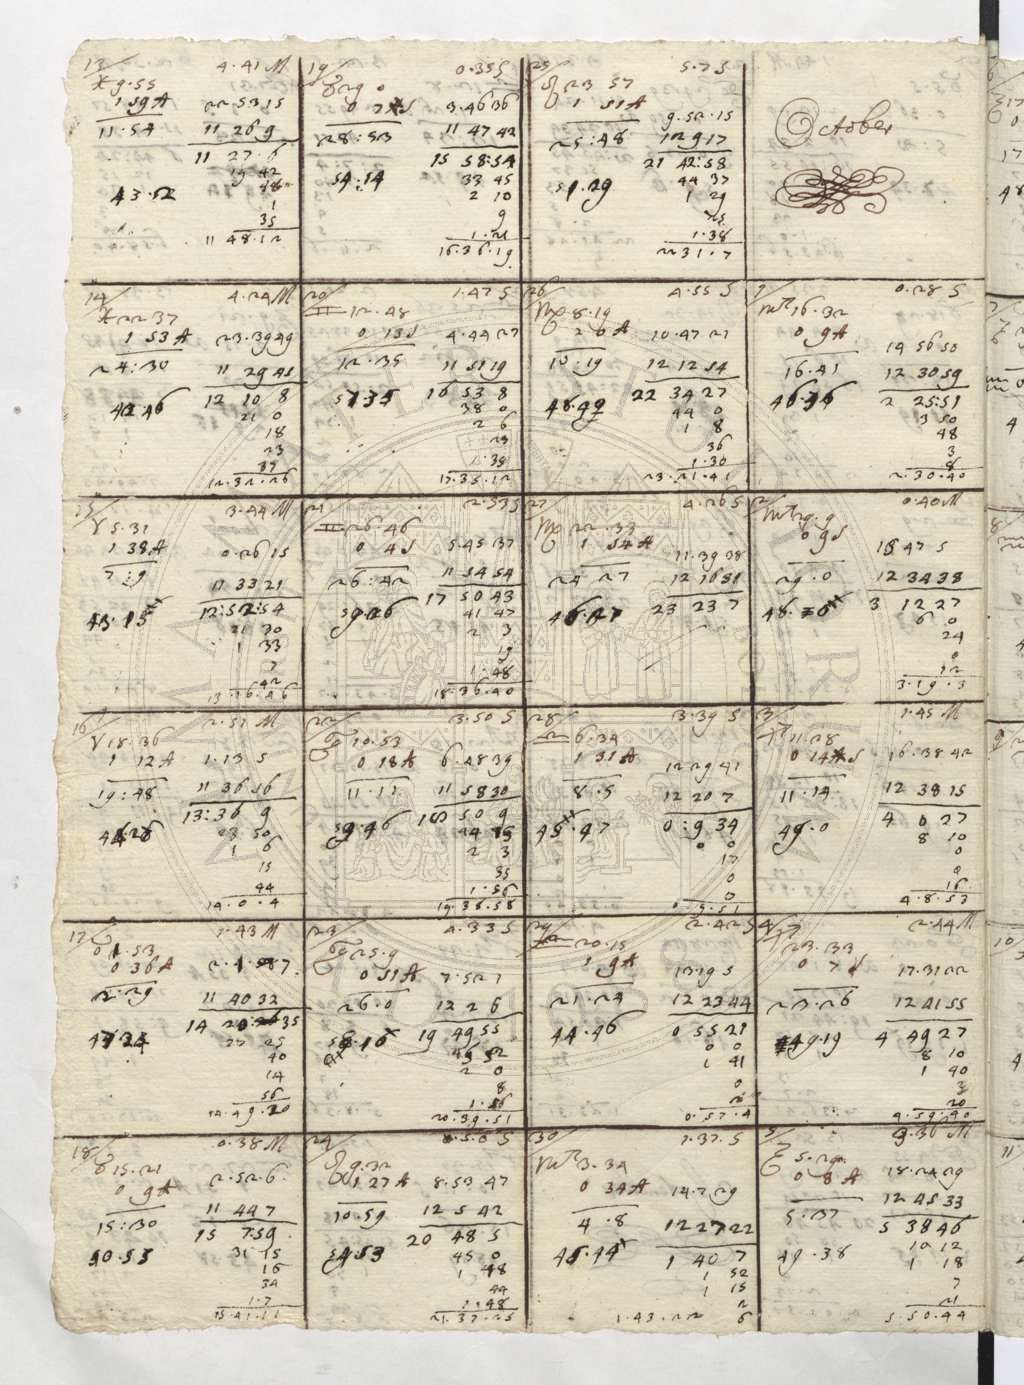 13/ 4.41 M
9.55
1 59 A 22 53 15
11.54 11 26 9
11 27.6
19 42
43.52
1
35
11 48.12
14/ 4.24 M
22 37
1 53 A 23.39 49
24:30 11 29 45
12 10 8
42 46 21 0
18
23
37
12.32.26
15/ 3.44 M
♈ 5.31
1 38 A 0.26 15
7:9 11 33 21
12:52:54
43.15 21 30
1 33
7
42
13.16.46
16/ 2.51 M
♈ 18.36
1 12 A 1.13 5
19:48 11 36 56
13:36 9
23 50
1 6
15
44
14.0.4
17/ 1.43 M
♉ 1.53
0 36 A
2.29 11 40 32
27 25
40
14
56
14.49.20
18/ 0.38 M
♉ 15.21
0 9 A 2.52.6
15:30 11 44 7
15 7 59
40.53 31 15
16
34
1.7
15.41.11
19/ 0.35 S
♉ 29 0
3.46 36
28:53 11 47 42
15 58:54
54:14 33 45
2 10
9
1.21
16.36.19
20/ 1.47 S
♊ 12.48
0 13 S 4.44 27
12.35 11 51 19
16 53 8
38 0
2 6
23
1.35
17.35.12
21 2.53 S
♊ 26.46
0 4 S 5.45 37
26:42 11 54 54
17 50 43
59 26 41 47
2 3
19
1.48
18.36.40
22/ 3.50 S
♋ 10.53
0 18 A 6.48 39
11.11 11 58 30
2 3
35
1.56
19.38.58
23/ 4.33 S
♋ 25.9
0 51 A 7.52 1
26.0 12 2 6
19 49 55
2 0
8
1.56
20.39.51
24/ 5.0 S
♌ 9.32
1 27 A 8.53 47
10.59 12 5 42
20 48 5
54.53 45 0
1 48
44
1.48
21.37.25
25/ 5.7 S
♌ 23 57
1 51 A 9.52.15
25:48 12 9 17
21 42:58
51.29 44 37
1 29
25
1.38
22 31.7
26/ 4.55 S
♍ 8.19
2 0 A 10.47 21
10:19 12 12 54
22 34 27
44 0
1 8
36
1.30
23.21.41
27/ 4.26 S
♍ 22.33
1 54 A 11.39 38
24 27
23 23 7
28/ 3.39 S
♎ 6.34
1 31 A 12 29 41
8.5 12 20 7
45.47 0:9 34
0 0
17
0
0
29/ 2.42 S
♎ 20.15
1 9 A 13 19 5
21.24 12 23 44
44.46 0 55 21
0 0
1 41
0
2
0.57.4
30/ 1.37.S
♏ 3.34
0 34 A 14.7 29
4.8 12 27 22
45.44 1 40 7
1 52
1 15
2
1.43.22 6
October
1/ 0.28 S
♏ 16.32
0 9 A 14 56 50
16.41 12 30 59
2 25:51
3 50
48
3
8
2.30.40
2/ 0.40 M
♏ 29.9
0 9 S 15 47 5
29.0 12 34 38
3 12 27
6 0
24
0
12
3.19.3
3/ 1.45 M
♐ 11.28
16.38 42
11.14 12 38 15
4 0 27
49.0 8 10
0
0
16
4.8.53
4/ 2.44 M
♐ 23.33
0 7 S 17.31 22
23.26 12 41 55
49.19 4 49 27
8 10
1 40
3
20
4.59.40
5/ 3.36 M
0 8 A 18.24 29
5.37 12 45 33
5 38 46
49.38 10 12
1 18
7
21
5.50.44